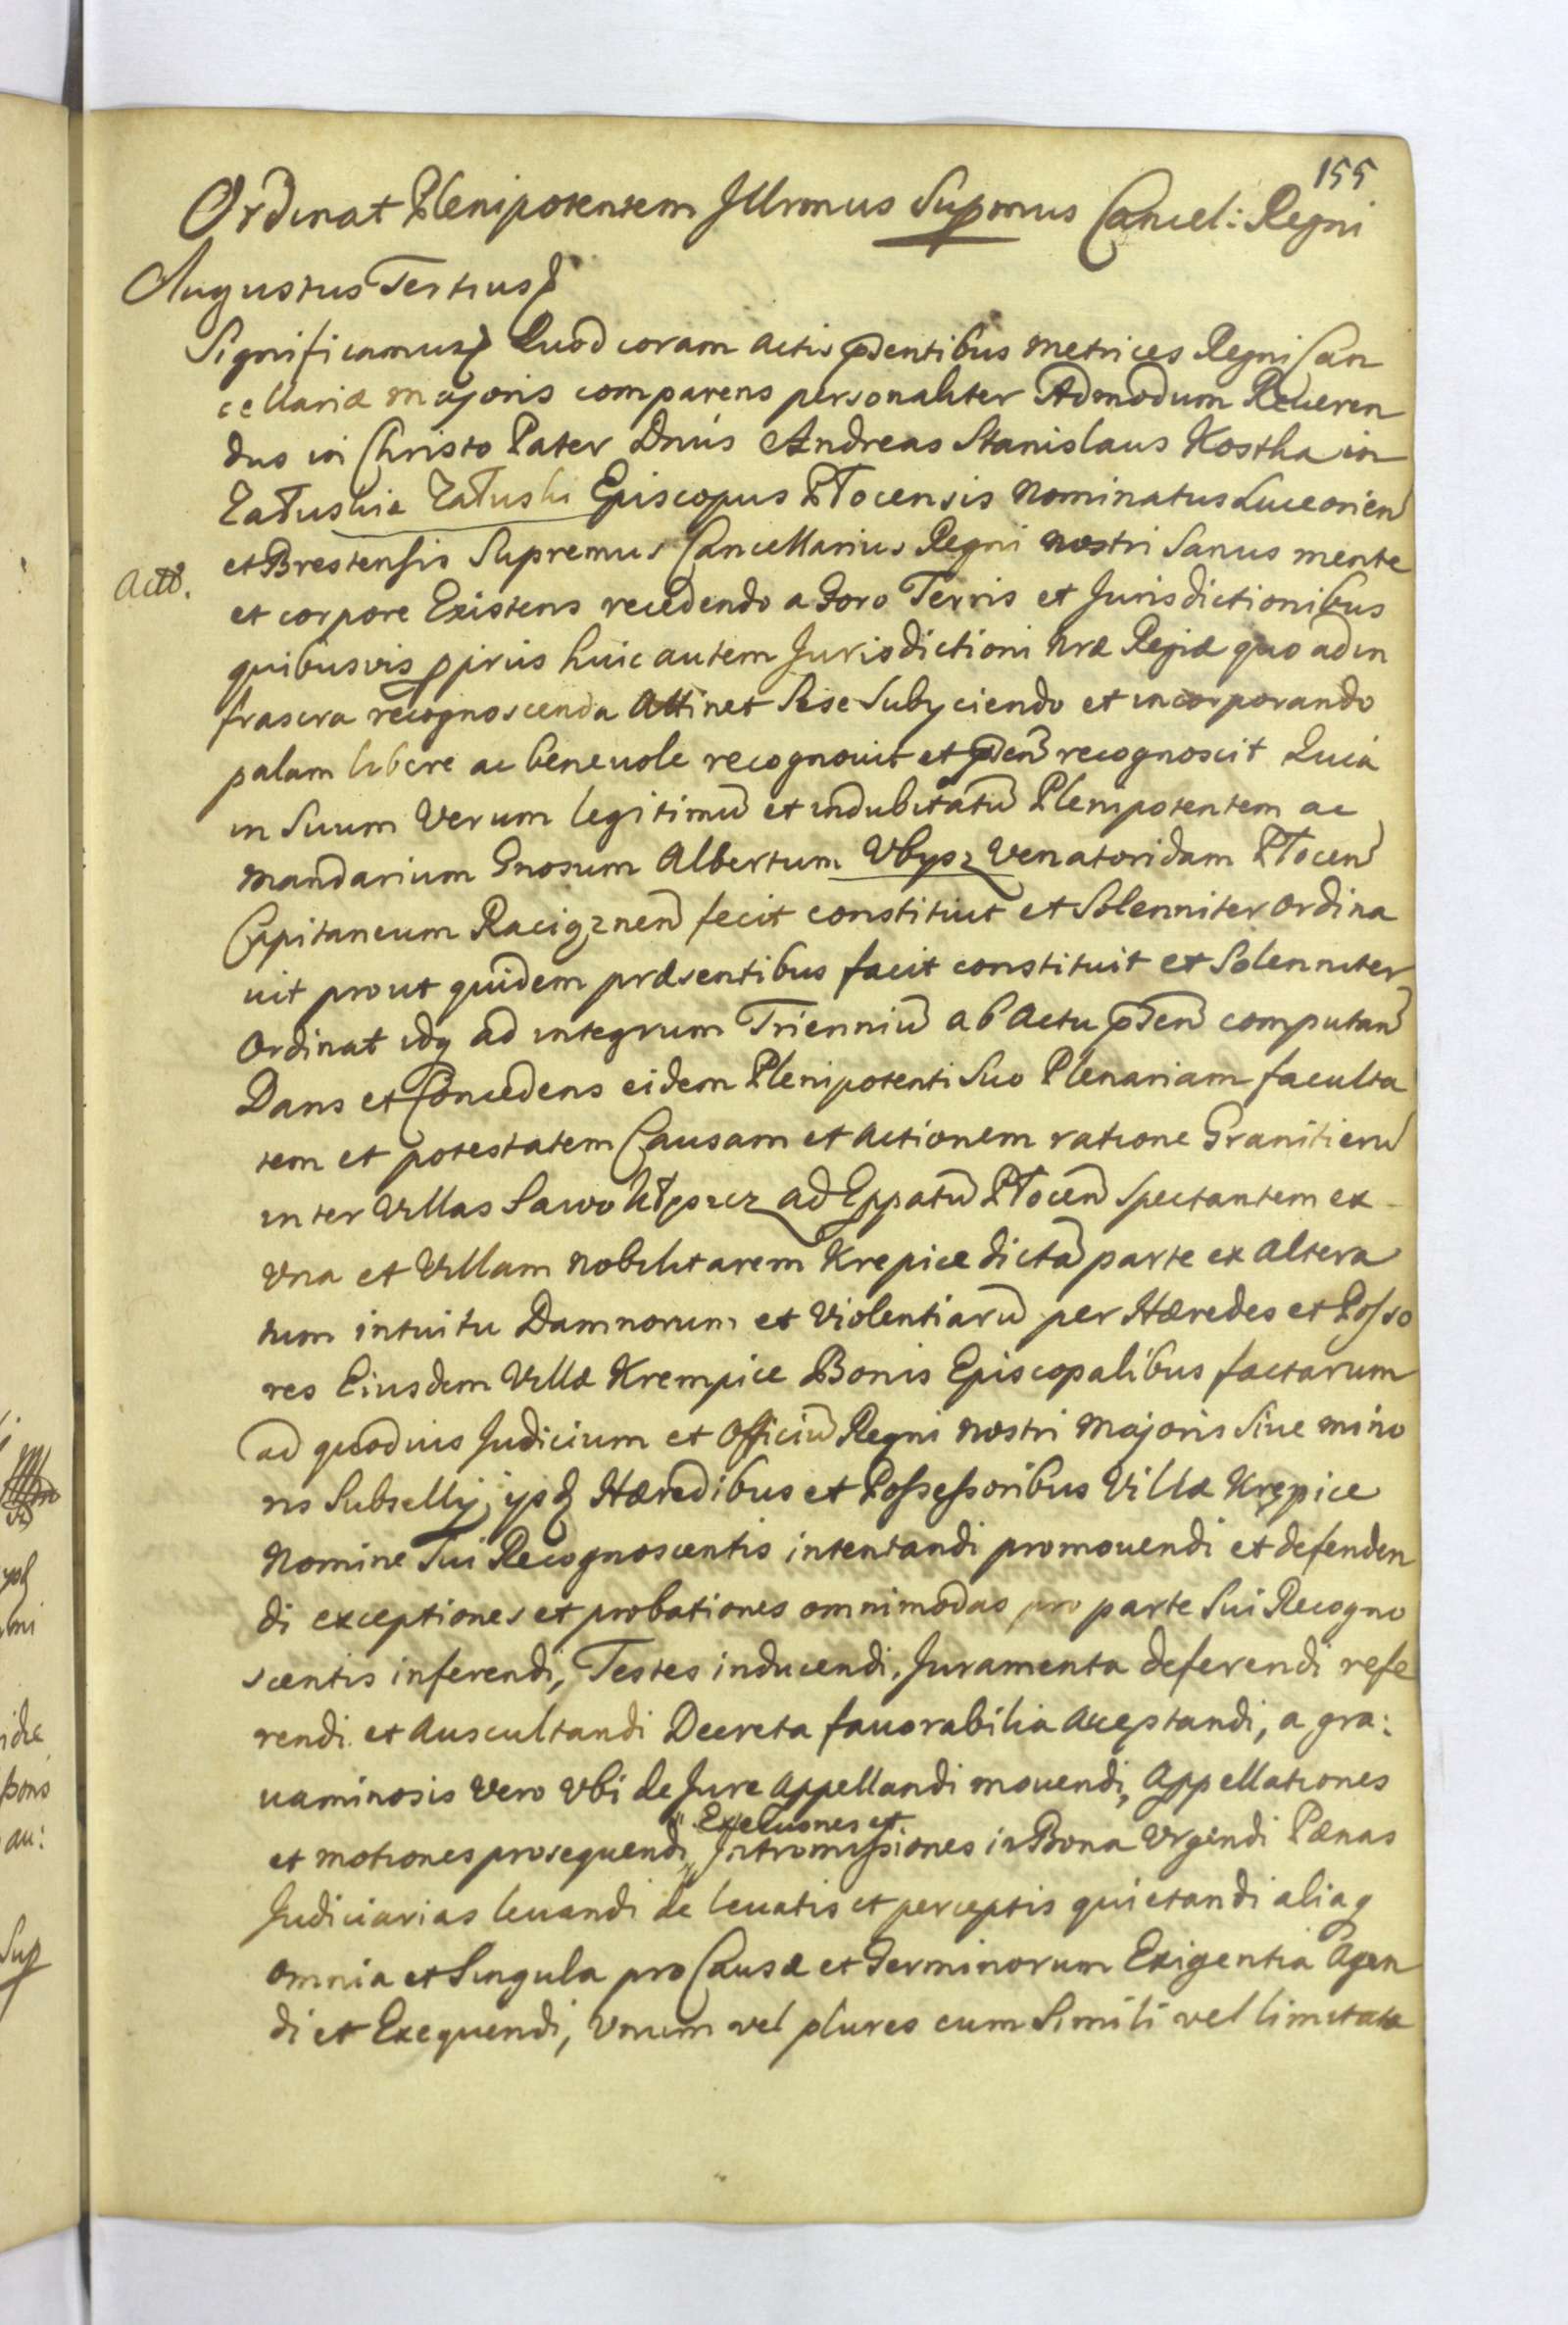 155
Ordinat Plenipotentem Illrmus Supmus Cancel: Regni
Augustus Tertius
Significamus Quod coram actis pdentibus Metrices Regni Can
cellariæ majoris comparens personaliter Admodum Reveren
dus in Christo Pater Dnus Andreas Stanislaus Kostka in
Załuskie Załuski Episcopus Płocensis Nominatus Luceorien
et Brestensis Supremus Cancellarius Regni nostri Sanus mente
Actt.
et corpore Existens recedendo a Foro Terris et Jurisdictionibus
quibusvis ppriis huic autem Jurisdictioni nræ Regiæ quo ad in
frascra recognoscenda Attinet Sese Subyciendo et incorporando
palam libere ac benevole recognovit et pden recognoscit Quia
in Suum Verum legitimu et indubitatu Plenipotentem ac
Mandarium Gnosum Albertum Ubysz Venatoridam Płocen
Capitaneum Raciąznen fecit constituit et Solenniter ordina
vit prout quidem præsentibus facit constituit et Solenniter
Ordinat idq ad integrum Trienniu ab Actu pden computan
Dans et Concedens eidem Plenipotenti Suo Plenariam faculta
tem et potestatem Causam et Actionem ratione Granitieru
inter Villas Sawo ad Eppatu Płocen Spectantem ex
Una et Villam nobilitarem Krepice dicta parte ex Altera
tum intuitu Damnorum et Violentiaru per Hæredes et Posso
res Eiusdem Villæ Krempice Bonis Episcopalibus factarum
ad quodvis Judicium et Officiu Regni nostri Majoris Sive mino
ris Subselly, ysd Hæredibus et Possessoribus Villæ Krępice
Nomine Sui Recognoscentis intentandi promovendi et defenden
di exceptiones et probationes omnimodas pro parte Sui Recogno
scentis inferendi, Testes inducendi, Juramenta deferendi refe
rendi et Auscultandi Decreta favorabilia Acceptandi, a gra:
vaminosis Vero Vbi de Jure Appellandi movendi, Appellationes
Exelusnes et
et motiones prosequendi, Intromissiones in Bona Vrgendi Pænas
Judiciarias levandi de levatis et perceptis quietandi aliaq
omnia et Singula pro Causæ et Terminorum Exigentia Agen
di et Exequendi, Vnum vel plures cum Simili vel limitata